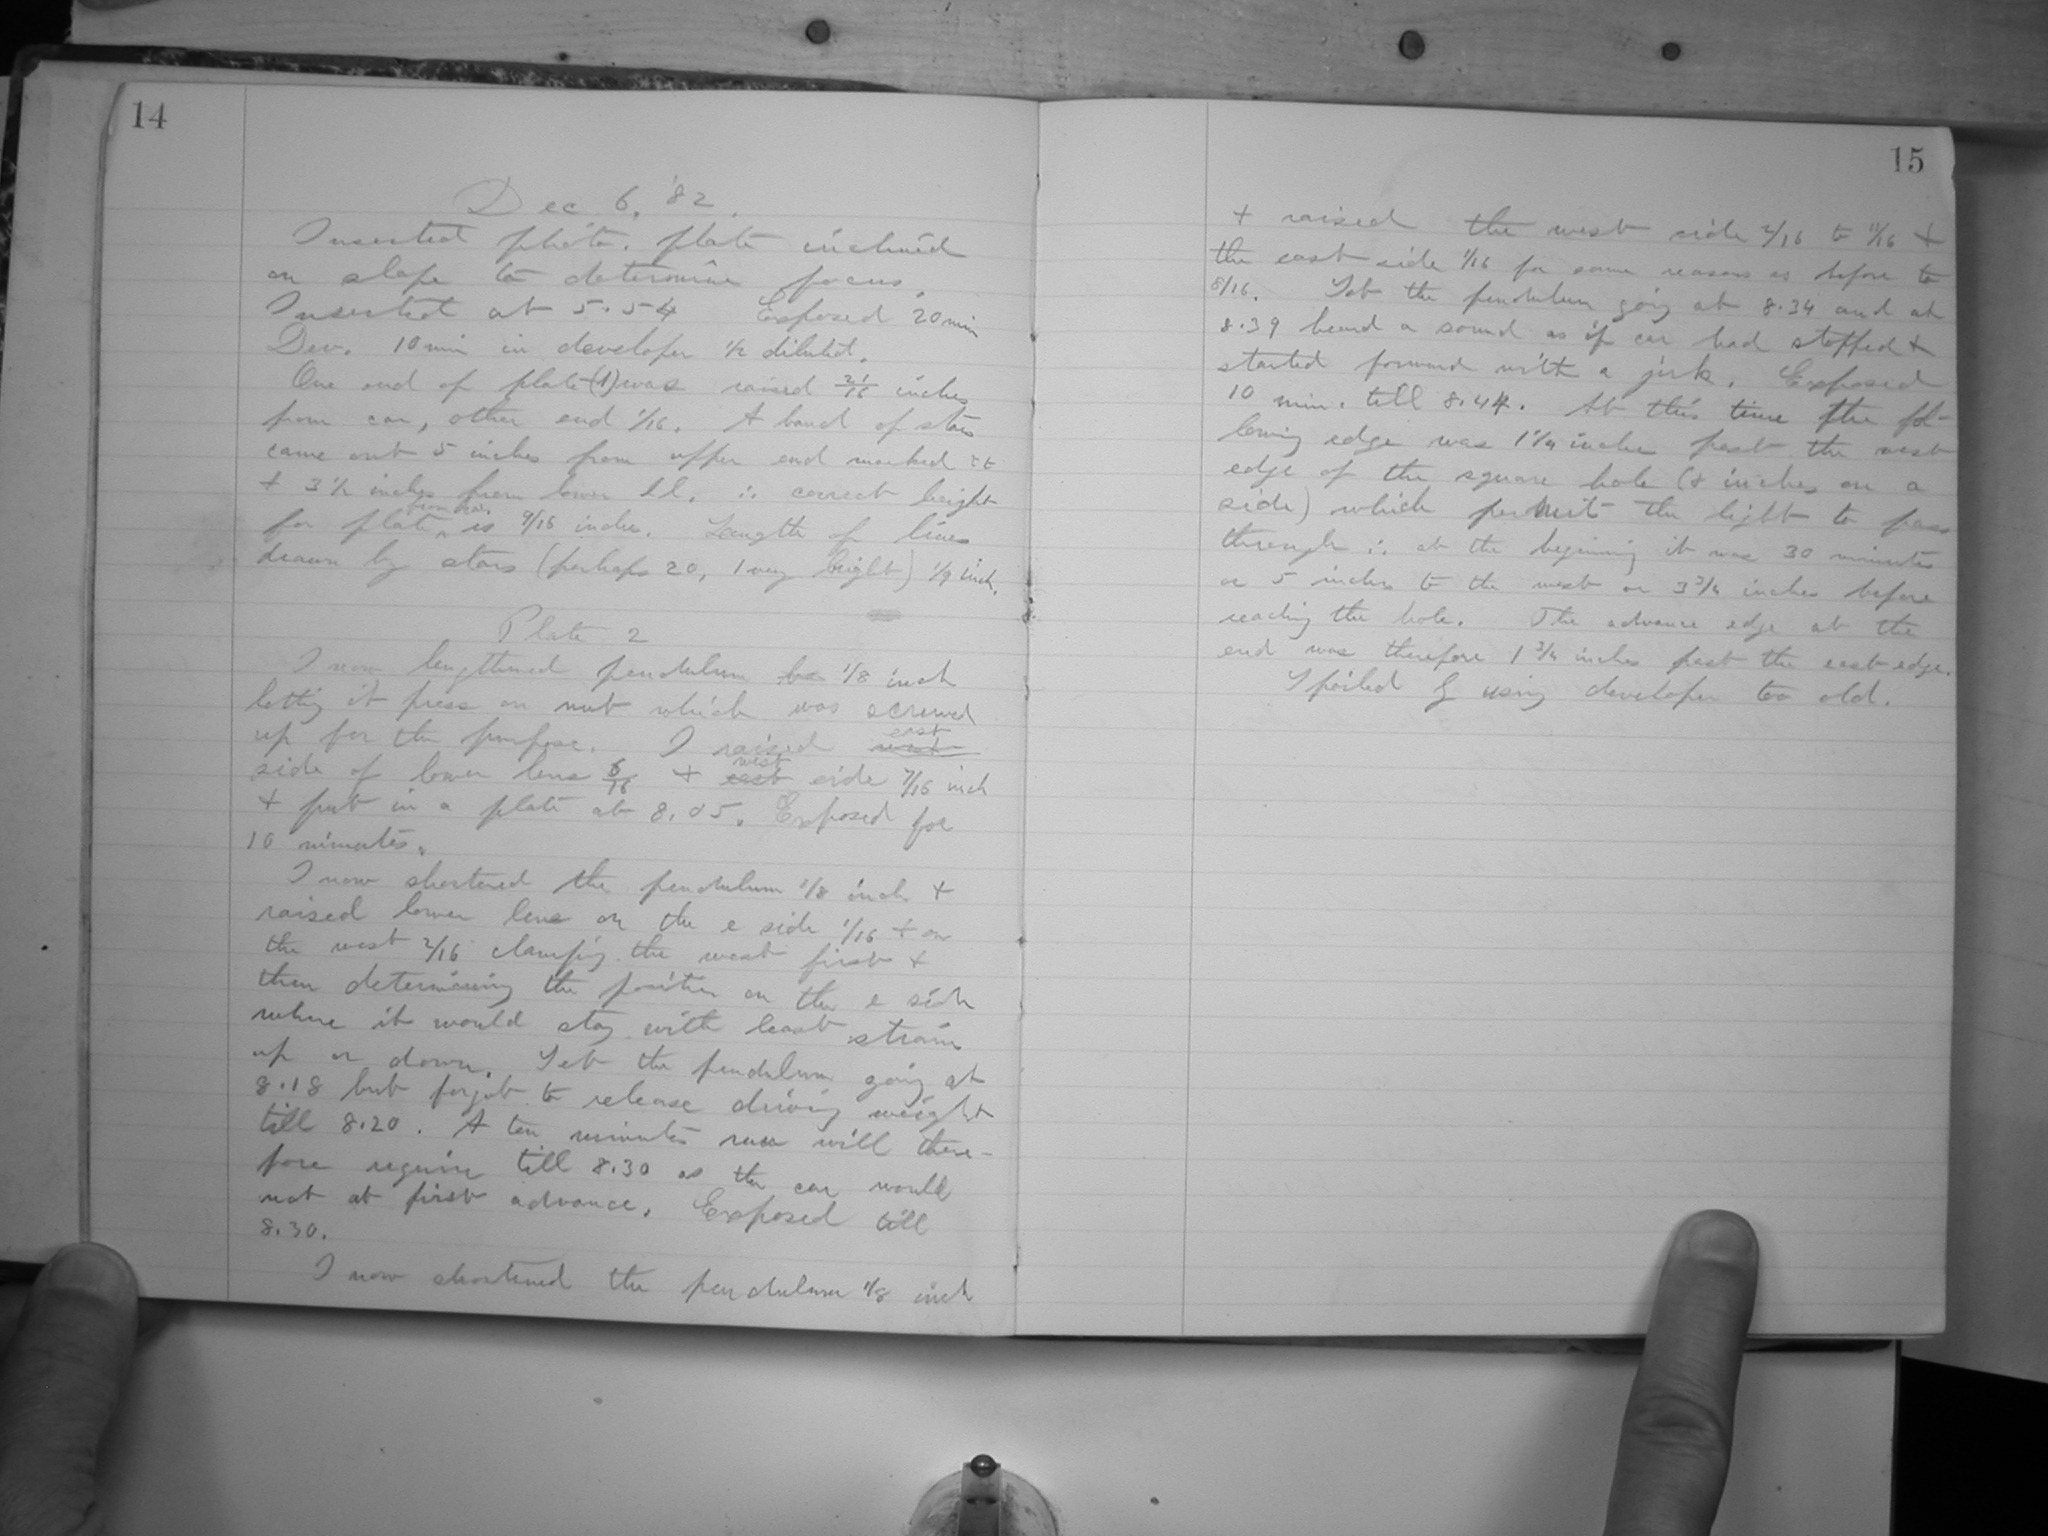 14
Dec 6, '82.
Inserted photo. plate inclined
on slope to determine focus.
Inserted at 5.54 Exposed 20 min
Dev. 10 min in developer 1/2 diluted.
One end of plate (1) was raised 21/16 inches
from car, other end 1/16. A band of stars
came out 5 inches from upper end marked
+ 3 1/2 inches from lower ∴ correct height
for plate from car is 9/16 inches. Length of lines
drawn by stars (perhaps 20, 1 very bright) 1/9 inch.
Plate 2
I now lengthened pendulum 1/8 inch
letting it press on nut which was screwed
up for the purpose. I raised west east
side of lower lens 6/16 + east west side 7/16 inch
+ put in a plate at 8.05. Exposed for
10 minutes.
I now shortened the pendulum 1/8 inch +
raised lower lens on the e side 1/16 + on
the west 2/16 clamping the west first +
then determining the position on the e side
where it would stay with least strain
up or down. Set the pendulum going at
8.18 but forgot to release driving weight
till 8.20. A ten minutes run will there-
fore require till 8.30 as the car would
not at first advance. Exposed till
8.30.
I now shortened the pendulum 1/8 inch
15
+ raised the west side 2/16 to 11/16 +
the east side 1/16 for same reasons as before to
8/16. Set the pendulum going at 8.34 and at
8.39 heard a sound as if car had stopped +
started forward with a jerk. Exposed
10 min. till 8.44. At this time the fol-
lowing edge was 1 1/4 inches past the west
edge of the square hole ( inches on a
side) which permit the light to pass
through ∴ at the beginning it was 30 minutes
or 5 inches to the west or 3 3/4 inches before
reaching the hole. The advance edge at the
end was therefore 1 3/4 inches past the east edge.
Spoiled by using developer too old.